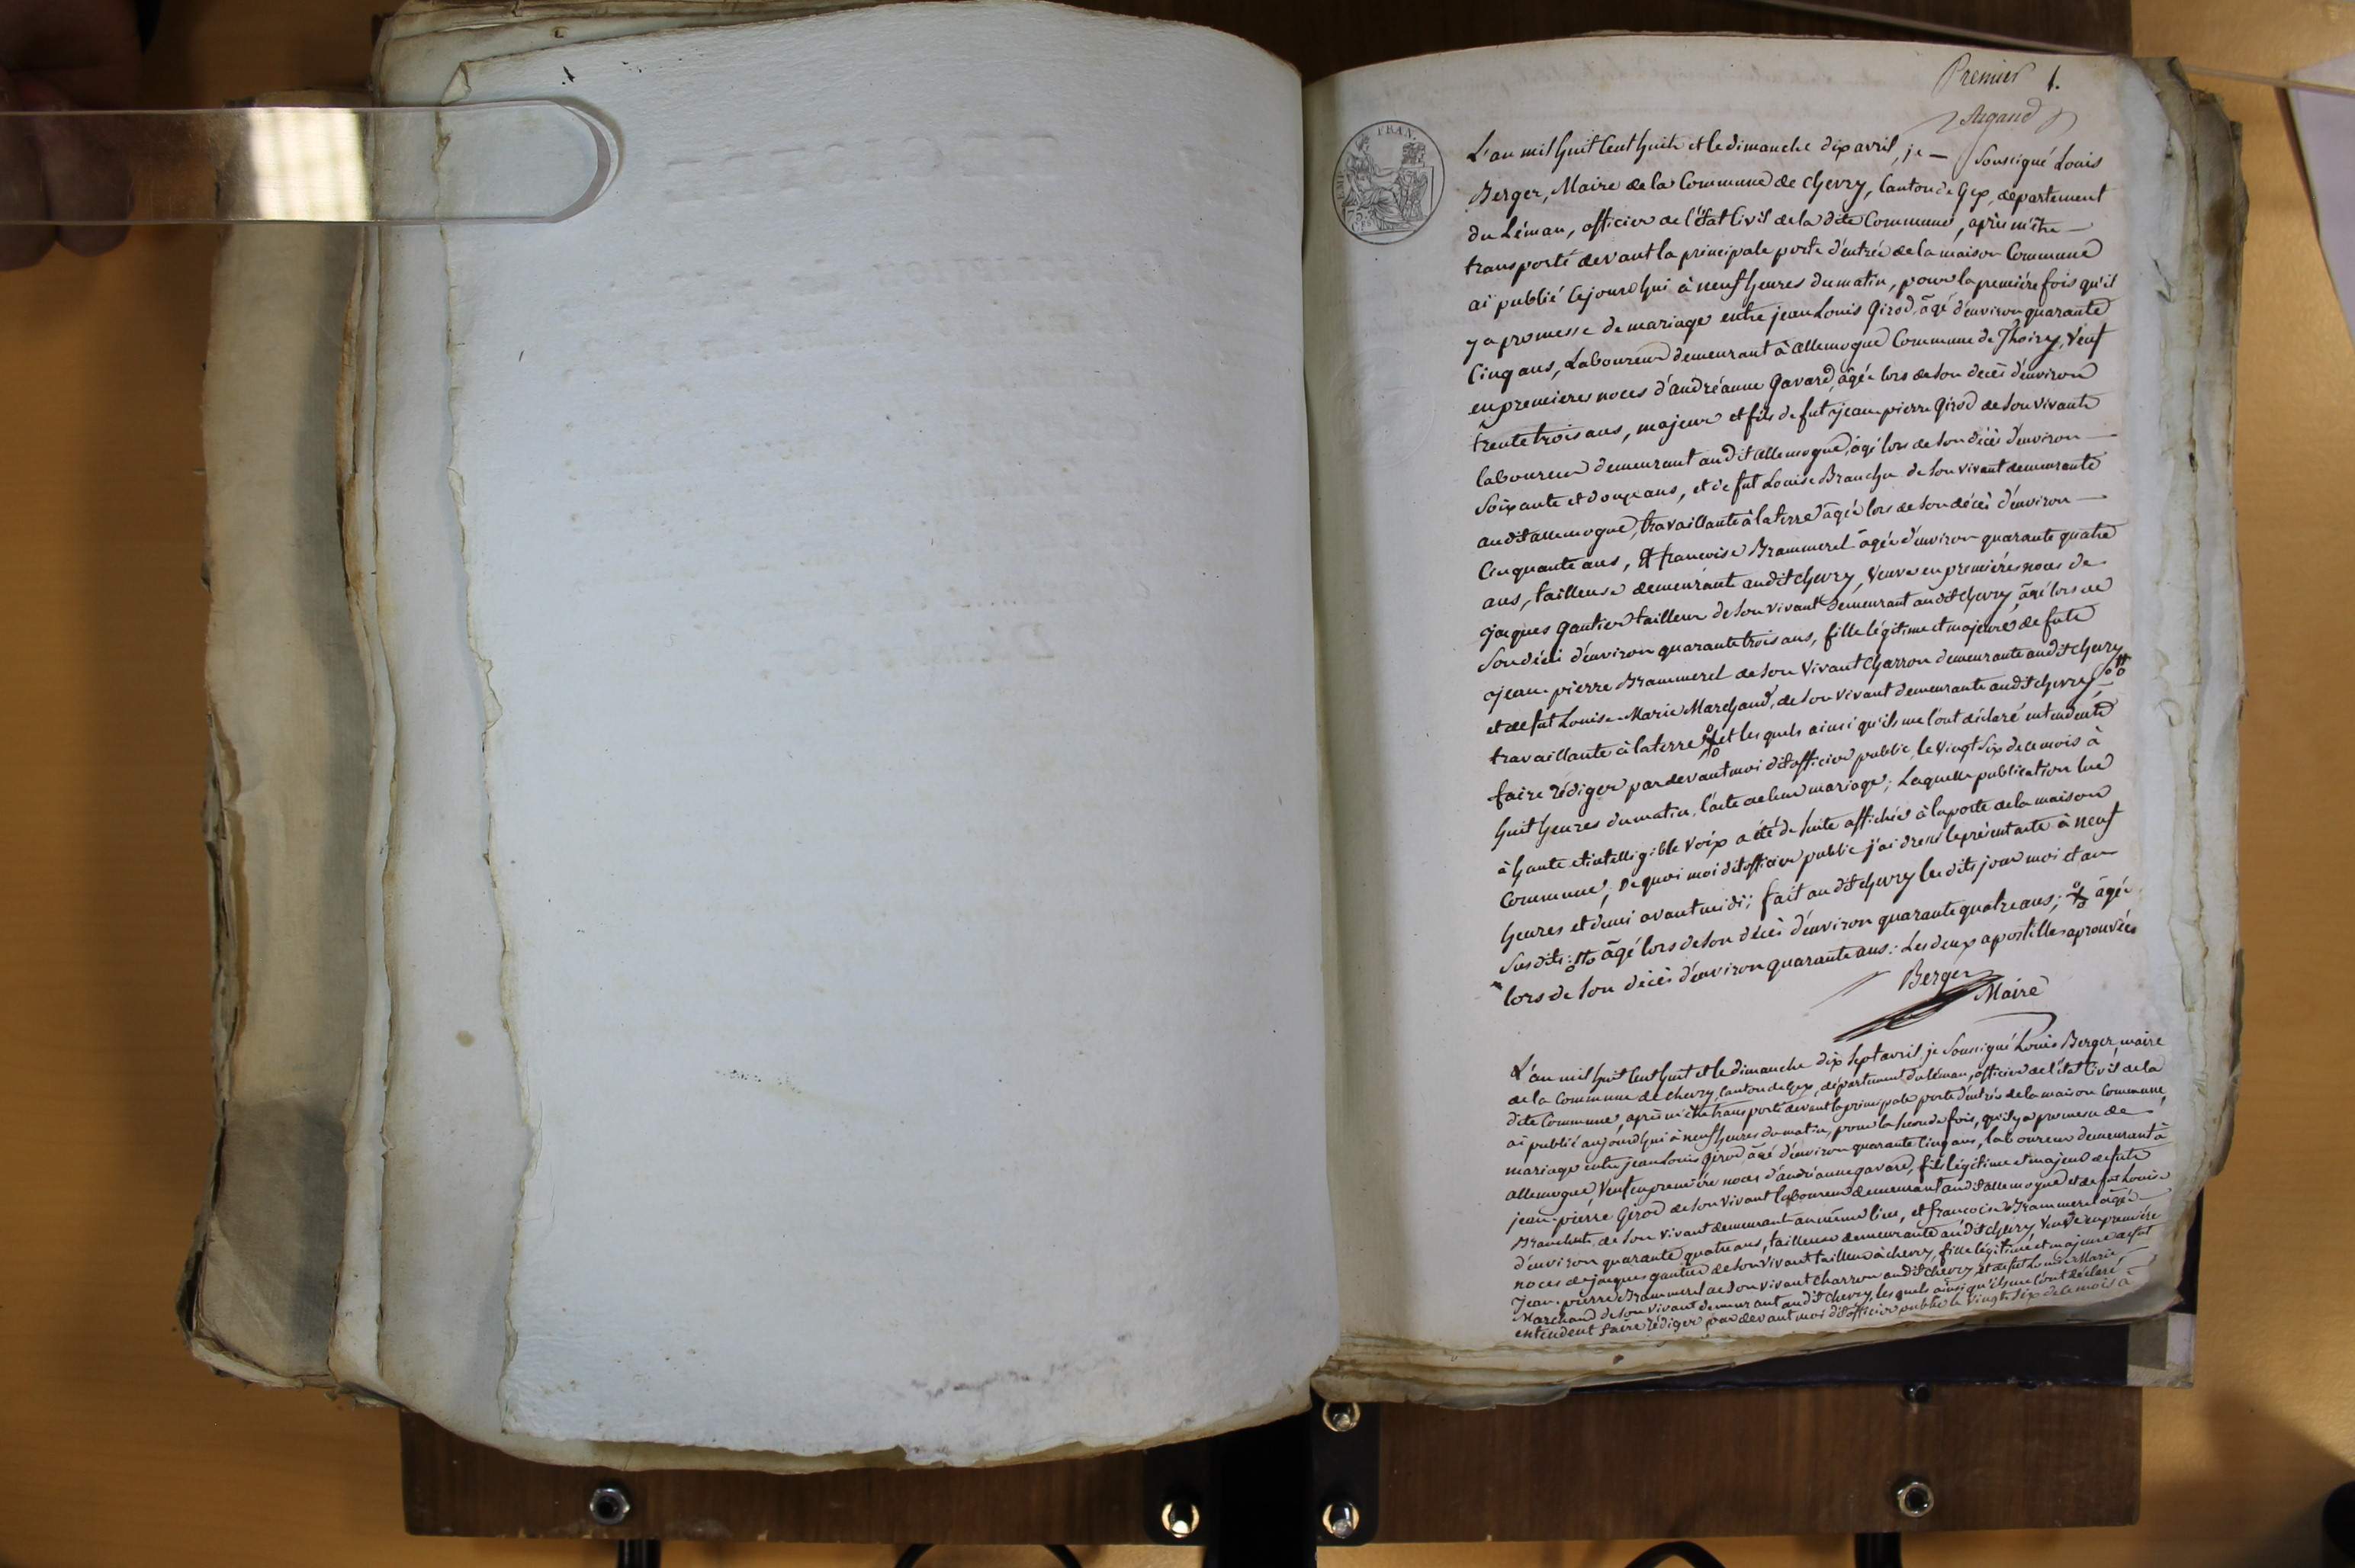 Premier 1.
Argand
EMP. FRAN.
75 Ces
L'an mil huit cent huit et le dimanche dix avril, je — Soussigné Louis
Berger, Maire de la Commune de Chevry, Canton de Gex, département
du Léman, officier de l'état Civil de la dite Commune, après m'être —
transporté devant la principale porte d'entrée de la maison Commune
ai publié cejourdhui à neuf heures du matin, pour la première fois qu'il
y a promesse de mariage entre jean Louis Girod, âgé d'environ quarante
Cinq ans, Laboureur demeurant à allemogne Commune de Thoiry, Veuf
en premieres noces d'andréanne Gavard, âgée lors de son décès d'environ
trente trois ans, majeur et fils de fut jean pierre Girod de son vivante
laboureur demeurant audit allemogne, âgé lors de son décès d'environ —
Soixante et douze ans, et de fut Louise Branchu de son vivant demeurante
audit allemogne, travaillante à la terre âgée lors de son décès d'environ —
Cinquante ans, Et francoise Brammerel âgée d'environ quarante quatre
ans, tailleuse demeurante audit chevry, Veuve en premières noces de
jacques Gautier tailleur de son vivant demeurant audit chevry, âgé lors de
Son décès d'environ quarante trois ans, fille légitime et majeure de fute
jean-pierre Brammerel de son Vivant charron demeurante audit chevry
et de fut Louise-Marie Marchand, de son vivant demeurante audit chevry,
travaillante à la terre et les quels ainsi qu'ils me l'ont déclaré entendente
faire rédiger pardevant moi dit officier public, le vingt six de ce mois à
huit heures du matin, l'acte de leur mariage; Laquelle publication lue
à haute et intelligible Voix a été de suite affichée à la porte de la maison
Commune; De quoi moi dit officier public j'ai dressé le présent acte à neuf
heures et demi avant midi; fait audit chevry les dits jour moi et an
Susdits: âgé lors de son décès d'environ quarante quatre ans; âgée
lors de son décès d'environ quarante ans: Les deux apostilles aprouvées
Berger
Maire
L'an mil huit cent huit et le dimanche dix sept avril, je Soussigné Louis Berger, maire
de la Commune de chevry, canton de Gex, département du Léman, officier de l'état Civil de la
dite Commune, après m'être transporté devant la principale porte d'entrée de la maison Commune,
ai publié aujourdhui à neuf heures du matin, pour la seconde fois, qu'il y a promesse de
mariage entre jean Louis Girod âgé d'environ quarante Cinq ans, laboureur demeurant à
allemogne, Veuf en première noces d'andréanne gavard, fils légitime et majeur de fute
jean-pierre Girod de son Vivant laboureur demeurant audit allemogne et de fut Louise
Branchu de son vivant demeurant au même lieu, et francoise Brammerel âgée
d'environ quarante quatre ans, tailleuse demeurante audit chevry Veuve en première
noces de jacques gautier de son vivant tailleur à chevry, fille légitime et majeure de fut
Jean-pierre Brammerel de son vivant charron audit chevry, et de fut Louise Marie
Marchand de son vivant demeurant audit chevry, les quels ainsi qu'ils me l'ont déclaré
entendent faire rédiger pardevant moi dit officier public le vingt six de ce mois à